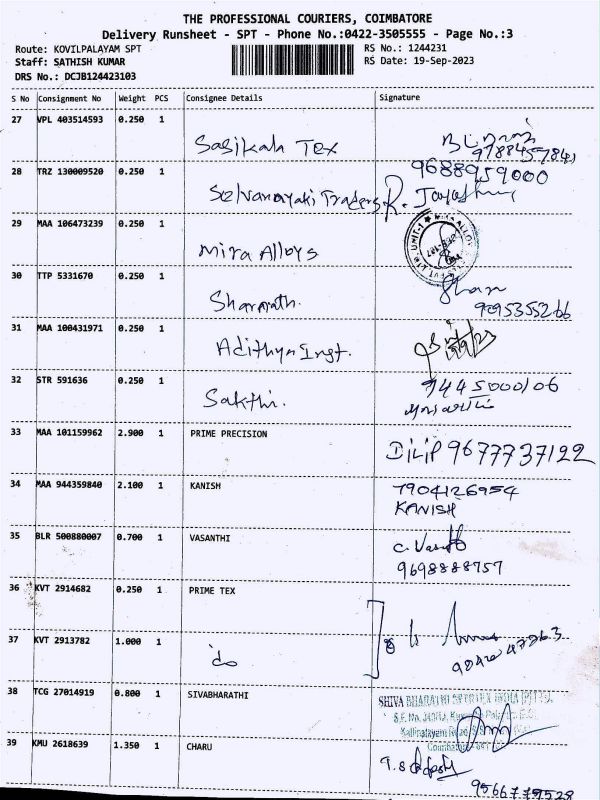 THE PROFESSIONAL COURIERS, COIMBATORE
Delivery Runsheet - SPT - Phone No.:0422-3505555 - Page No.:3
Route: KOVILPALAYAM SPT
RS No.: 1244231
Staff: SATHISH KUMAR
RS Date: 19-Sep-2023
DRS No.: DCJB124423103
S No Consignment No Weight PCS Consignee Details Signature
27 VPL 403514593 0.250 1
Sasikala Tex
28 TRZ 130009520 0.250 1
9688959000
Selvanayaki Traders R.
29 MAA 106473239 0.250 1
Mira Alloys
30 TTP 5331670 0.250 1
Sharnath.
9095355266
31 MAA 100431971 0.250 1
Adithya Inst.
32 STR 591636 0.250 1
9445000106
Sakthi.
33 MAA 101159962 2.900 1 PRIME PRECISION
DILIP 9677737122
34 MAA 944359840 2.100 1 KANISH
7904126954
KANISH
35 BLR 500880007 0.700 1 VASANTHI
C. Vasanth
9698888757
36 KVT 2914682 0.250 1 PRIME TEX
37 KVT 2913782 1.000 1
do
38 TCG 27014919 0.800 1 SIVABHARATHI
SHIVA BHARATHI
39 KMU 2618639 1.350 1 CHARU